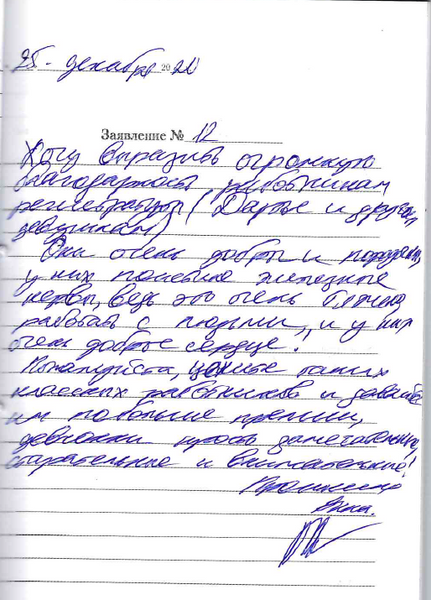 25. декабря 2020
Заявление № 12
Хочу выразить огромную
благодарность работникам
регистратуры (Дарье и другим
девушкам)
Они очень добры и
у них поистине железные
нервы, ведь это очень
работать с людьми, и у них
очень доброе сердце.
Пожалуйста, цените таких
классных работников и давайте
им побольше премии,
девчонки просто замечательные,
старательные и внимательные!
Анна.